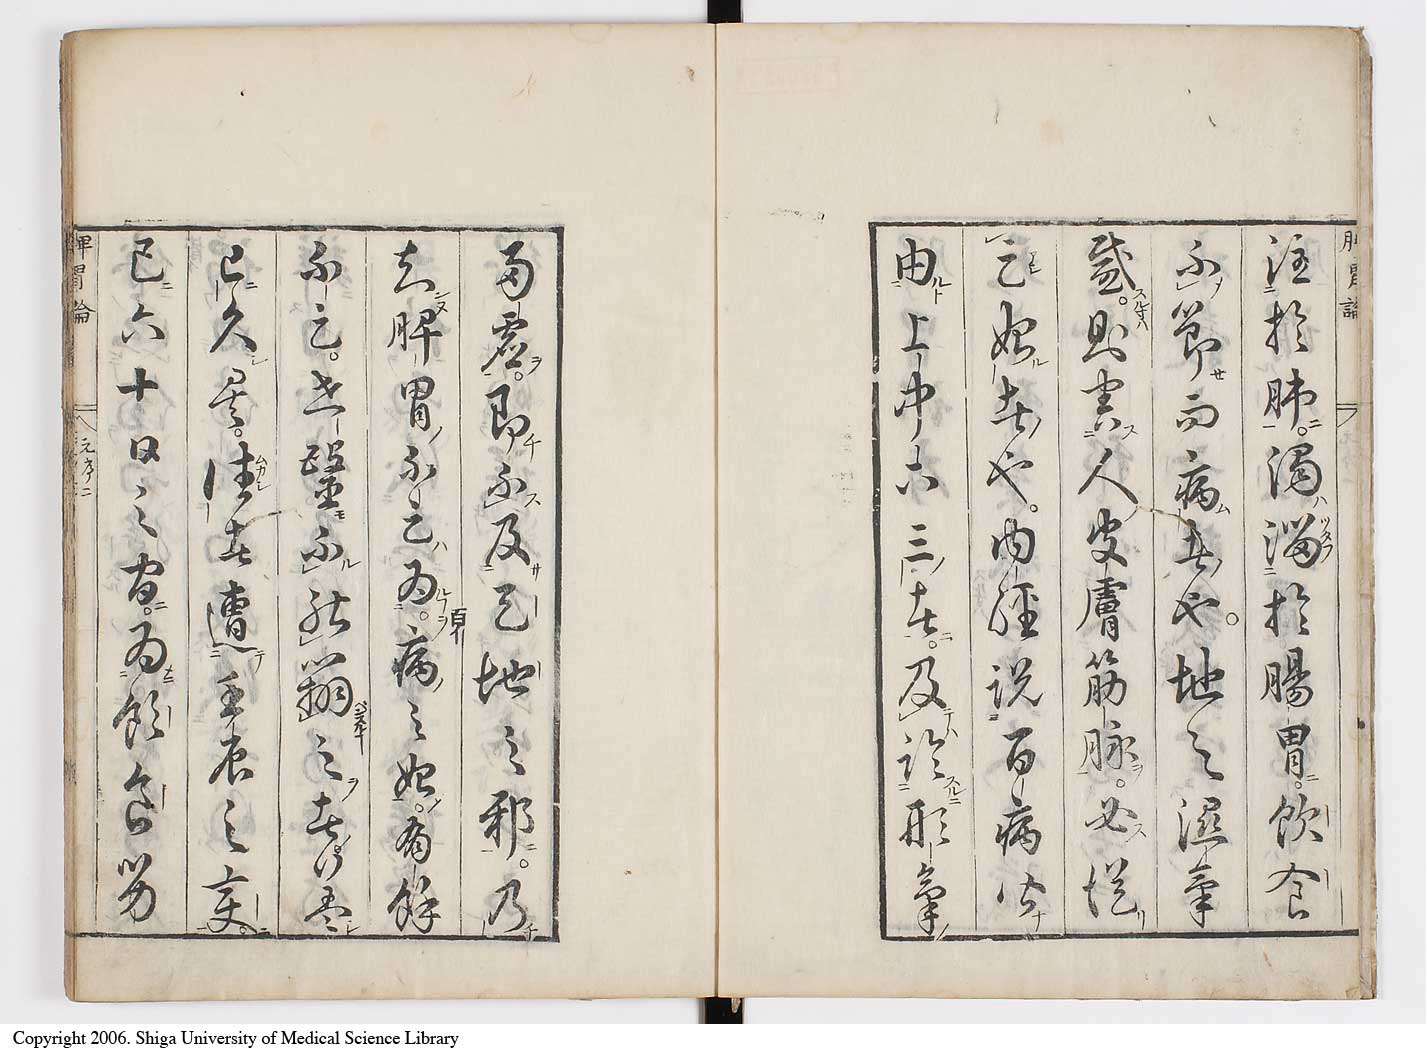 脾胃論
注於肺。濁溜於腸胃。飲食
不節而病者也。地之濕氣
感。則害人皮膚筋脉。必從
足始者也。内經説百病皆
由上中下三者。及論形氣
両虚。即不及天地之邪。乃
知脾胃不足為。百病之始。有餘
不足。世醫不能辨之者。盖
已久矣。往者遭壬辰之変。
五六十日之間。為飲食労
脾胃論 元序二
Copyright 2006. Shiga University of Medical Science Library